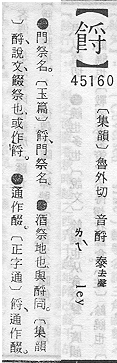 【䬭】
45160
〔集韻〕魯外切 音酹 泰去聲
ㄌㄟˋ ley
●門祭名。〔玉篇〕䬭，門祭名。●酒祭地也，與酹同。〔集韻
〕酹，說文，餟祭也，或作䬭。●通作醊。〔正字通〕䬭，通作醊。